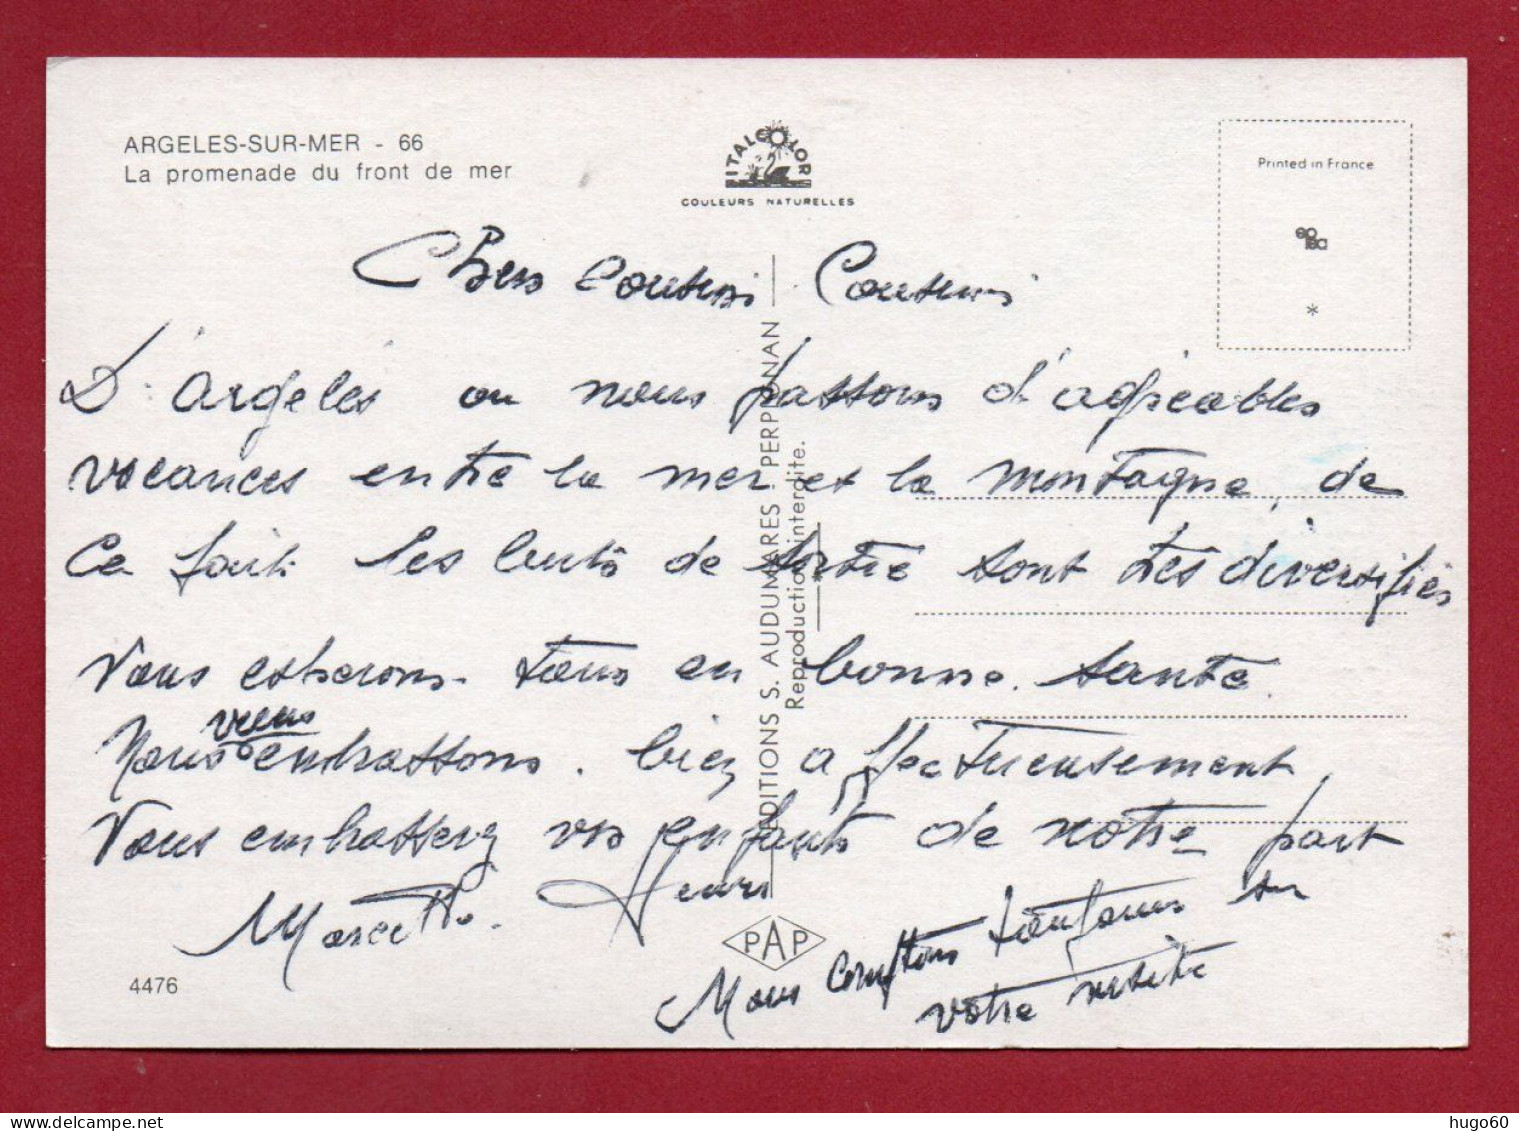 ARGELES-SUR-MER - 66
La promenade du front de mer
ITALCOLOR
COULEURS NATURELLES
Printed in France
*
Chers Cousins Cousines
D'Argelès ou nous passons d'agréables
vacances entre la mer et la montagne, de
Ce fait les buts de sortie sont très diversifiés
Vous esperons tous en bonne santé.
vous
Nous embrassons bien affectueusement,
Vous embrasserez vos enfants de notre part
Henri
Nous comptons toujours sur
votre visite
EDITIONS S. AUDUMARES PERPIGNAN
Reproduction interdite.
PAP
4476
hugo60